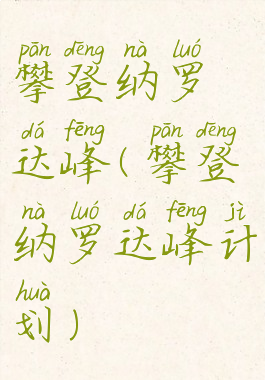 pān dēng nà luó
攀登纳罗
dá fēng pān dēng
达峰(攀登
nà luó dá fēng jì
纳罗达峰计
huà
划)